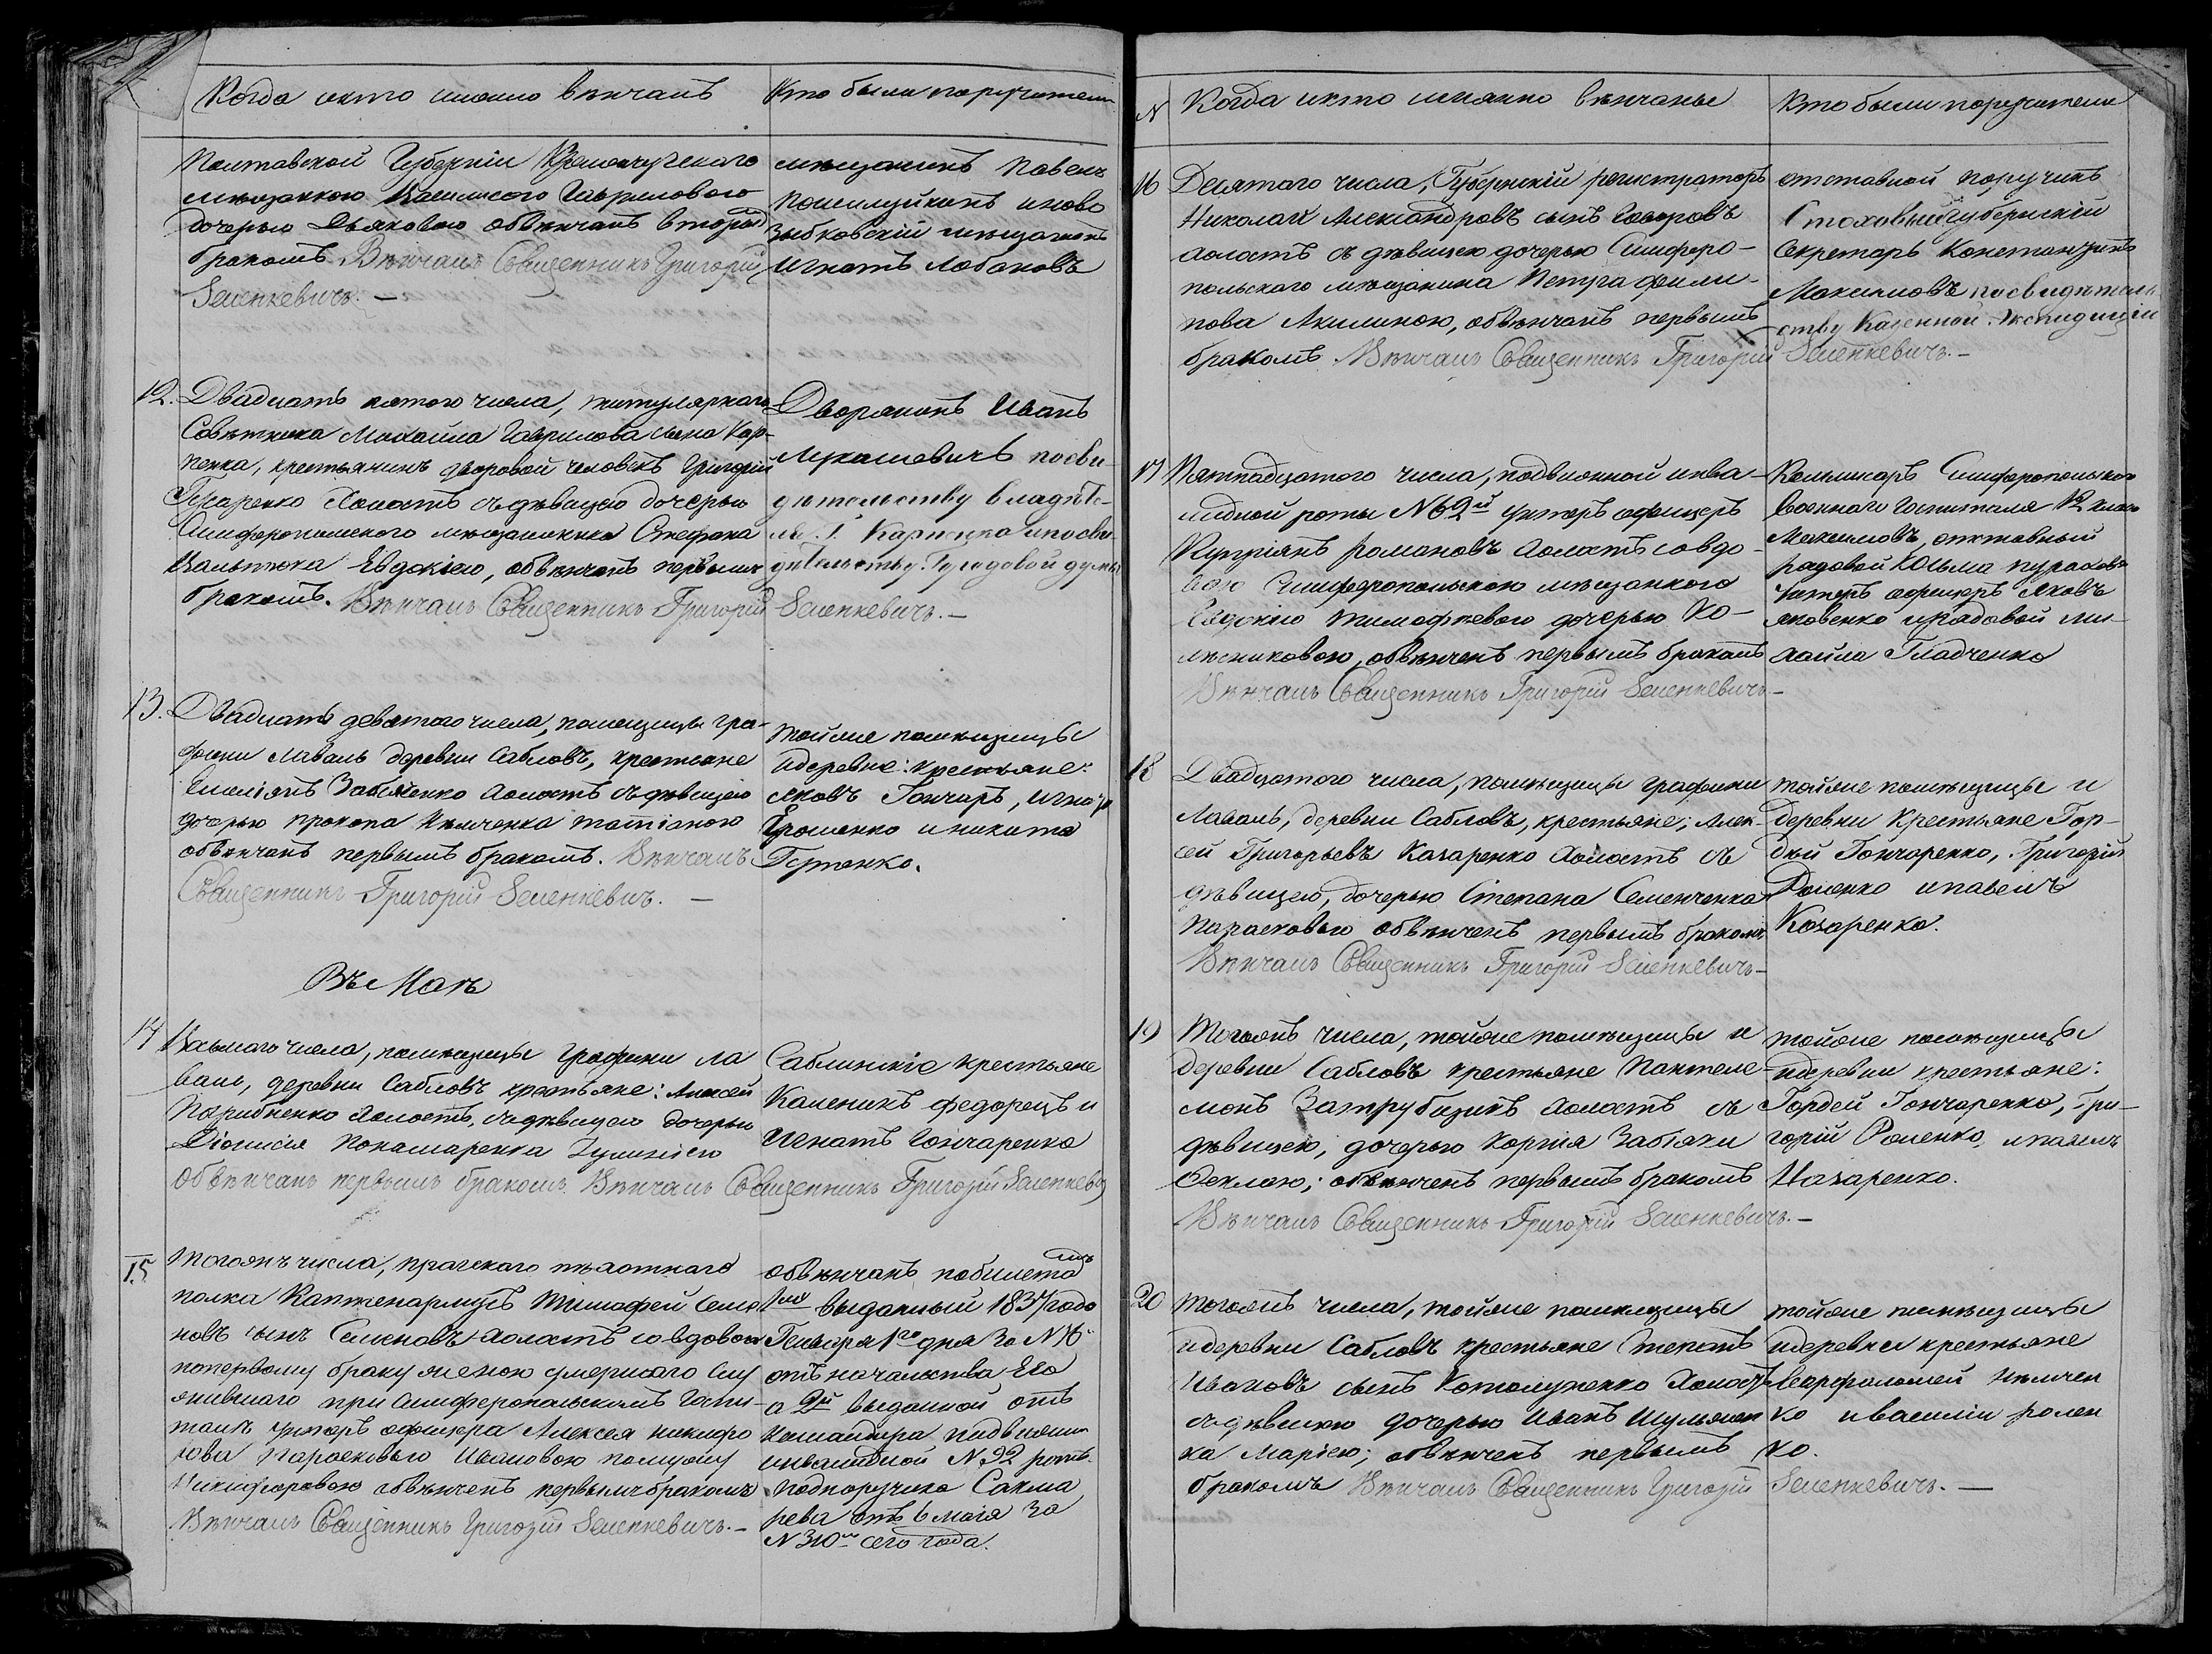 Когда и кто именно вѣнчанъ
Кто были поручители
Полтавской Губерніи Кременчугскаго
мѣщанкою Гавриловою
дочерью Дьяковою обвѣнчанъ вторымъ
бракомъ Вѣнчалъ Священникъ Григорій
Зеленкевичъ. —
мѣщанинъ Павелъ
и ново
зыбковскій мѣщанинъ
Игнатъ Лобановъ
12. Двадцать пятого числа, титулярнаго
Совѣтника Михаила Гаврилова сына Кар-
пенка, крестьянинъ дворовой человекъ Григорій
холостъ съ дѣвицею дочерью
Симферопольского мѣщанина Стефана
Евдокіею, обвѣнчанъ первымъ
бракомъ. Вѣнчалъ Священникъ Григорій Зеленкевичъ. —
Дворянинъ Иванъ
Лукашевичъ по сви-
дѣтельству владѣте-
ля Г. Карпенка и по сви-
дѣтельству Городовой думы
13. Двадцать девятого числа, помещицы гра-
фини Лаваль деревни Сабловъ, крестьяне
Емеліянъ Забіяченко холостъ съ дѣвицею
дочерью Прокопа Нѣмченка Татіаною
обвѣнчанъ первымъ бракомъ. Вѣнчалъ
Священникъ Григорій Зеленкевичъ. —
Той же помѣщицы
и деревни: крестьяне:
Яковъ Гончаръ, Игнатъ
Ерошенко и Никита
Въ Маѣ
14 Осьмаго числа, помѣщицы Графини Ла
валь, деревни Сабловъ крестьяне: Алексей
холостъ, съ дѣвицею дочерью
Діонисія Понамаренка
обвѣнчанъ первымъ бракомъ. Вѣнчалъ Священникъ Григорій Зеленкевич
Саблинскіе крестьяне
Каленикъ Федорецъ и
Игнатъ Гончаренко
15 Тогожъ числа, пражскаго пѣхотнаго
полка Каптенармусъ Тимофей Семе
новъ сынъ Семеновъ холостъ со вдовою
по первому браку женою умершаго слу
жившаго при Симферопольскомъ Госпи
талѣ унтеръ офицера Алексея Никифо
рова Параскевью Ивановою по мужу
Никифоровою обвѣнченъ первымъ бракомъ
Вѣнчалъ Священникъ Григорій Зеленкевичъ. —
обвѣнчанъ по билетамъ
1му выданный 1837 года
Генваря 1го дня за №
отъ начальства Его
а 2й выданной отъ
командира подвижной
инвалидной № 92 роты
подпоручика Сакма
рева отъ 6 маія за
№ 310м сего года.
№ Когда и кто именно вѣнчаны
Кто были поручители
16 Десятаго числа, Губернскій регистраторъ
Николай Александровъ сынъ Говоровъ
холостъ съ дѣвицею дочерью Симферо-
польскаго мѣщанина Петра Фили-
пова Акилиною, обвѣнчанъ первымъ
бракомъ. Вѣнчалъ Священникъ Григорій Зеленкевичъ. —
отставной поручикъ
губернскій
Секретарь Константинъ
Максимовъ по свидѣтель
ству Казенной Экспедиціи
17 Пятнадцатого числа, подвижной инва-
лидной роты № 92й унтеръ офицеръ
Купріянъ Романовъ холостъ со вдо-
вою Симферопольскою мѣщанкою
Евдокіею Тимофѣевою дочерью Ко-
лесниковою, обвѣнченъ первымъ бракомъ
Вѣнчалъ Священникъ Григорій Зеленкевичъ —
Комисаръ Симферопольского
военнаго Госпиталя 12 класа
Максимовъ, отставный
радовой Косьма
унтеръ офицеръ Яковъ
Яковенко и Радовой Ми-
хайла Гладченко
18 Двадцатого числа, помѣщицы графини
Лаваль, деревни Сабловъ, крестьяне; Алек-
сей Григорьевъ Назаренко холостъ съ
дѣвицею, дочерью Степана Семенченка
Параскевью обвѣнченъ первымъ бракомъ
Вѣнчалъ Священникъ Григорій Зеленкевичъ —
той же помѣщицы и
деревни крестьяне Гор-
дѣй Гончаренко, Григорій
Роленко и павелъ
Назаренко.
19 Тогожъ числа, той же помѣщицы и
деревни Сабловъ крестьяне Пантеле-
монъ Затрубщикъ холостъ съ
дѣвицею, дочерью Корнія Забіяки
Феклою; обвѣнченъ первымъ бракомъ
Вѣнчалъ Священникъ Григорій Зеленкевичъ. —
той же помѣщицы
и деревни крестьяне:
Гордей Гончаренко, Гри-
горій Роленко, и павелъ
Назаренко.
20 Тогожъ числа, той же помѣщицы
и деревни Сабловъ крестьяне Степанъ
Ивановъ сынъ Котолупенко холостъ
съ дѣвицею дочерью Иванъ Шульжен
ка Маріею; обвѣнченъ первымъ
бракомъ Вѣнчалъ Священникъ Григорій Зеленкевичъ. —
той же помѣщицы
и деревни крестьяне
Варфоломей Нѣмчен
ко и Василій Ролен
ко.